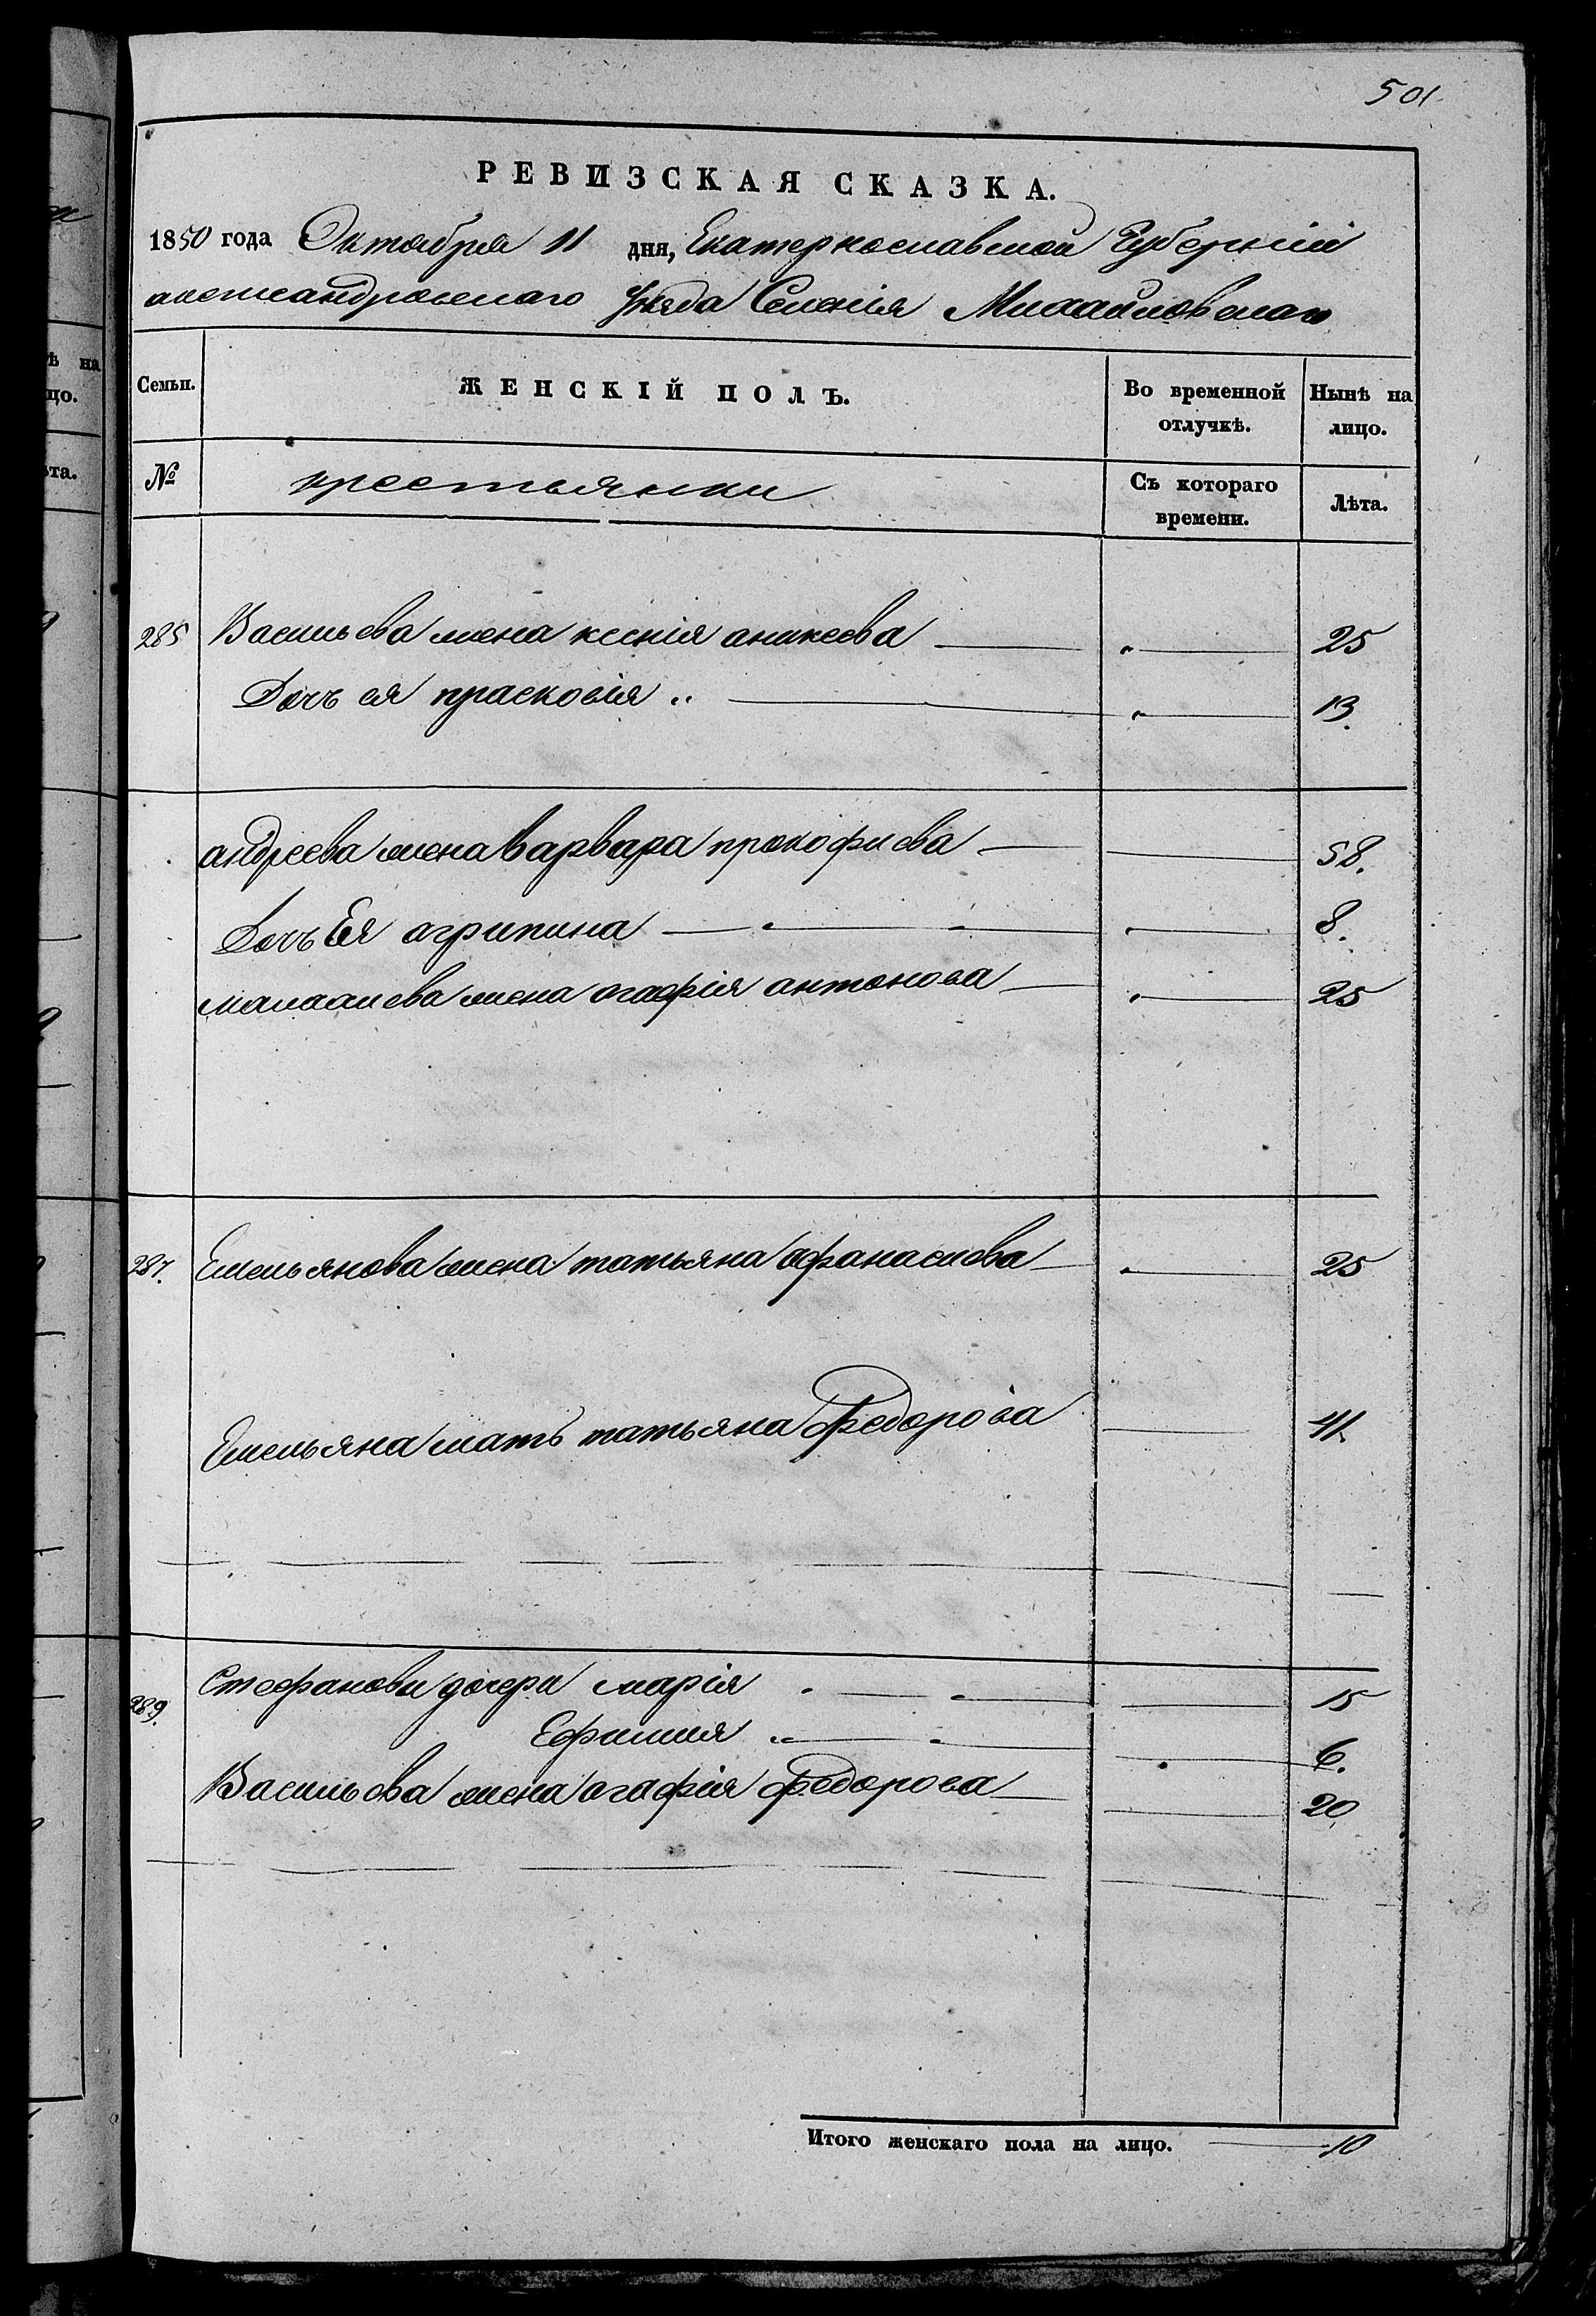 501.
РЕВИЗСКАЯ СКАЗКА.
1850 года Октября 11 дня, Екатеринославской Губерніи
александровскаго Уѣзда Селенія Михайловскаго
Семьи. ЖЕНСКІЙ ПОЛЪ. Во временной отлучкѣ. Нынѣ на лицо.
№ крестьянки Съ котораго времени. Лѣта.
285 Васильева жена ксенія аникеева 25
Дочь ея прасковія 13.
андреева жена Варвара прокофиева 58.
Дочь Ея агрипина 8.
жена агафія антонова 25
287. Емельянова жена татьяна афанасиева 25
Емельяна мать татьяна Федорова 41.
289. Стефановы дочери марія 15
Ефимия 6.
Васильева жена агафія Федорова 20
Итого женскаго пола на лицо. 10
ѣ на
цо.
та.